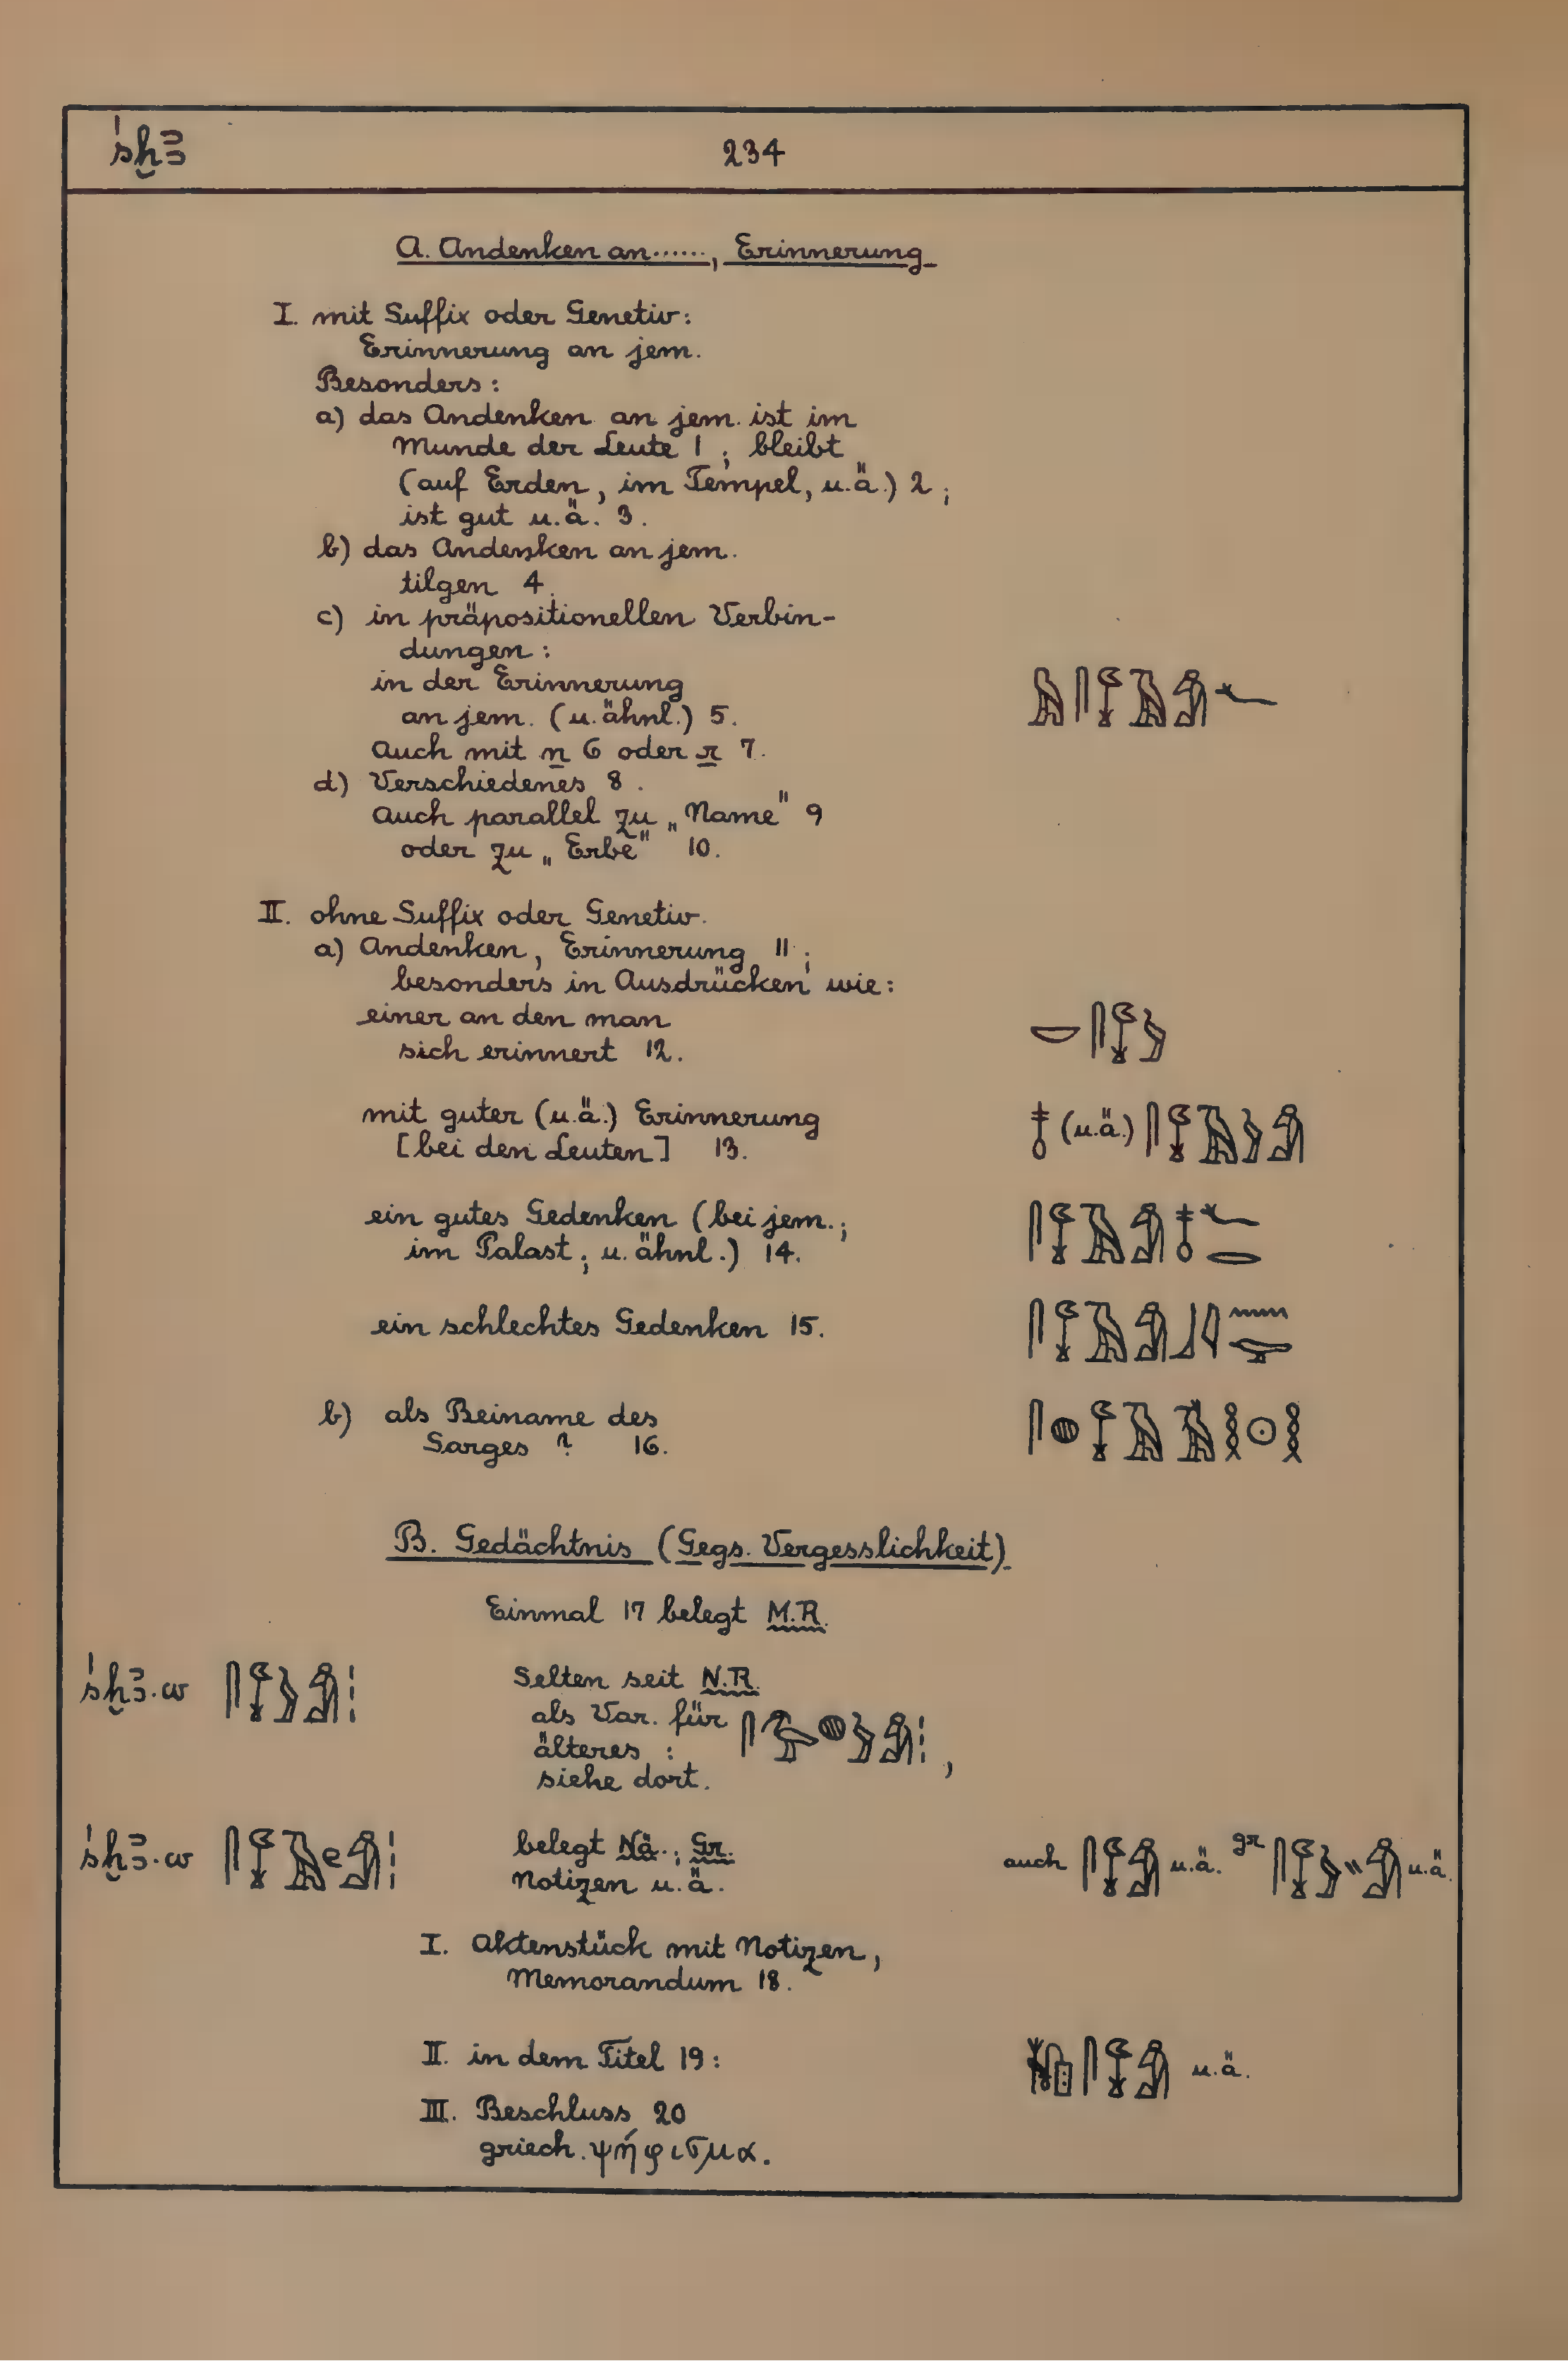 śḫꜣ
234
A. Andenken an ......, Erinnerung
I. mit Suffix oder Genetiv:
Erinnerung an jem.
Besonders:
a) das Andenken an jem. ist im
Munde der Leute 1; bleibt
(auf Erden, im Tempel, u.ä.) 2;
ist gut u.ä. 3.
b) das Andenken an jem.
tilgen 4.
c) in präpositionellen Verbin-
dungen:
in der Erinnerung
an jem. (u. ähnl.) 5.
Auch mit n 6 oder r 7.
d) Verschiedenes 8.
Auch parallel zu „Name" 9
oder zu „Erbe" 10.
II. ohne Suffix oder Genetiv.
a) Andenken, Erinnerung 11;
besonders in Ausdrücken wie:
einer an den man
sich erinnert 12.
mit guter (u.ä.) Erinnerung (u.ä.)
[bei den Leuten] 13.
ein gutes Gedenken (bei jem.;
im Palast; u. ähnl.) 14.
ein schlechtes Gedenken 15.
b) als Beiname des
Sarges ? 16.
B. Gedächtnis (Gegs. Vergesslichkeit)
Einmal 17 belegt M.R.
śḫꜣ.w Selten seit N.R.
als Var. für
älteres : ,
siehe dort.
śḫꜣ.w belegt Nä.; Gr. auch u.ä. gr u.ä.
Notizen u.ä.
I. Aktenstück mit Notizen,
Memorandum 18.
II. in dem Titel 19: u.ä.
III. Beschluss 20
griech. ψήφισμα.